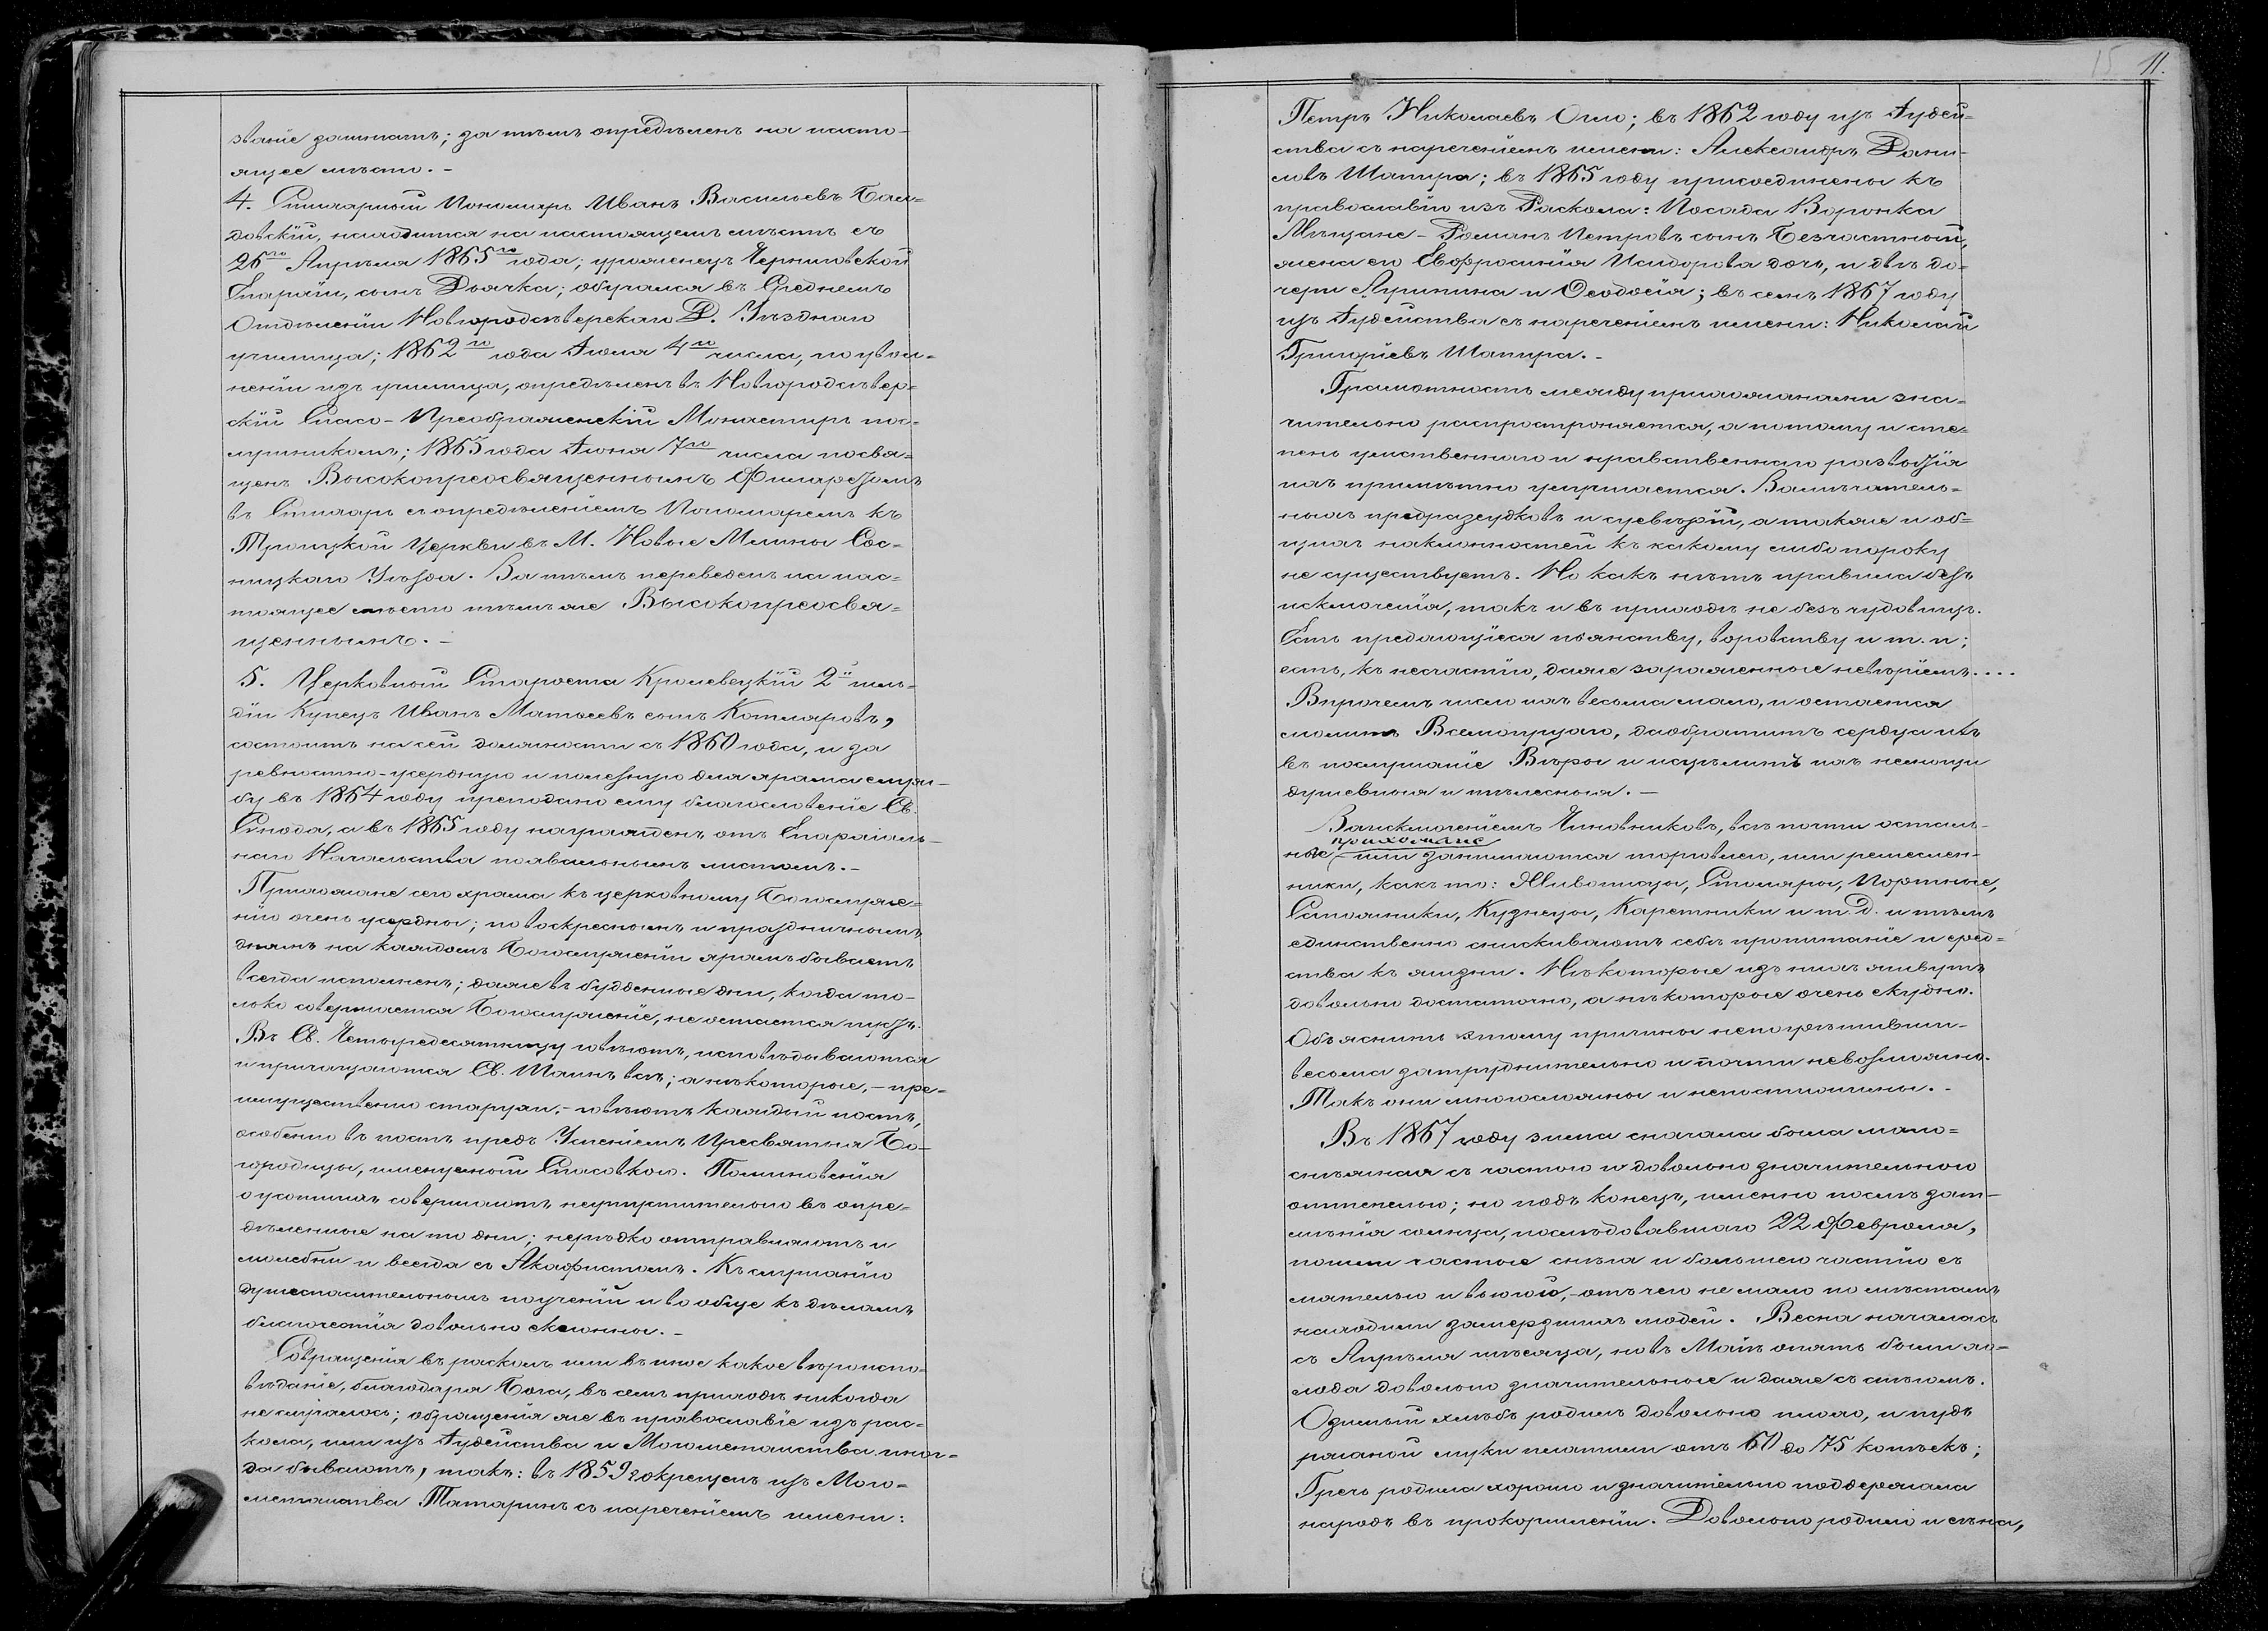 званіе дошкатъ; за тѣмъ опредѣленъ на насто-
ящее мѣсто. -
4. Стихарный Пономарь Иванъ Васильевъ Бал-
довскій, находится на настоящемъ мѣстѣ съ
26го Апрѣля 1865го года; уроженецъ Черниговской
Епархіи, сынъ Дьячка; обучался въ Среднемъ
Отдѣленіи Новгородсѣверскаго Д. Уѣзднаго
училища; 1862го года Іюля 4го числа, по уволь-
неніи изъ училища, опредѣленъ въ Новгородсѣвер-
скій Спасо-Преображенскій Монастырь пос-
лушникомъ; 1865 года Іюня 7го числа посвя-
щенъ Высокопреосвященнымъ Филаретомъ
въ Стихарь съ опредѣленіемъ Пономаремъ къ
Троицкой Церкви въ М. Новые Млины Сос-
ницкаго Уѣзда. За тѣмъ переведенъ на нас-
тоящее мѣсто тѣмъ же Высокопреосвя-
щеннымъ. -
5. Церковный Староста Кролевецкій 2й гиль-
діи Купецъ Иванъ Матвеевъ сынъ Котляровъ,
состоитъ на сей должности съ 1860 года, и за
ревностно-усердную и полезную для храма служ-
бу въ 1864 году преподано ему благословеніе Св.
Синода, а въ 1865 году награжденъ отъ Епархіаль-
наго Начальства похвальнымъ листомъ. -
Прихожане сего храма къ церковному Богослуже-
нію очень усердны; по воскреснымъ и праздничнымъ
днямъ на каждомъ Богослуженіи храмъ бываетъ
всегда исполненъ; даже въ будденные дни, когда то-
лько совершается Богослуженіе, не остается пустъ.
Въ Св. Четыредесятницу говѣютъ, исповѣдываются
и причащаются Св. Таинъ всѣ; а нѣкоторые, - пре-
имущественно старухи, - говѣютъ каждый постъ,
особенно въ постъ предъ Успеніемъ Пресвятыя Бо-
городицы, именуемый Спасовкою. Поминовенія
о усопшихъ совершаютъ неупустительно въ опре-
дѣленные на то дни; нерѣдко отправляютъ и
молебны и всегда съ Акафистомъ. Къ слушанію
душеспасительныхъ поученій и вообще къ дѣламъ
благочестія довольно склонны. -
Совращенія въ расколъ или въ иное какое вѣроиспо-
вѣданіе, благодаря Бога, въ семъ приходѣ никогда
не случалось; обращенія же въ православіе изъ рас-
кола, или изъ Іудейства и Могометанства иног-
да бываютъ, такъ: въ 1859 г окрещенъ изъ Мого-
метанства Татаринъ съ нареченіемъ имени:
15 11.
Петръ Николаевъ Огло; въ 1862 году изъ Іудей-
ства съ нареченіемъ имени: Александръ Дани-
ловъ Шапира; въ 1865 году присоединены къ
православію изъ Раскола: Посада Воронка
Мѣщане - Романъ Петровъ сынъ Безчастный,
жена его Евфросинія Исидорова дочь, и двѣ до-
чери Агрипина и Ѳеодосія; въ семъ 1867 году
изъ Іудейства съ нареченіемъ имени: Николай
Григоріевъ Шапира. -
Грамотность между прихожанами зна-
чительно распространяется, а потому и сте-
пень умственнаго и нравственнаго развитія
ихъ примѣтно улучшается. Замѣчатель-
ныхъ предразсудковъ и суевѣрій, а также и об-
щихъ наклонностей къ какому либо пороку
не существуетъ. Но какъ нѣтъ правила безъ
исключенія, такъ и въ приходѣ не безъ чудовищъ.
Есть предающіеся пьянству, воровству и т. п;
есть, къ несчастію, даже зараженные невѣріемъ....
Впрочемъ число ихъ весьма мало, и остается
молить Всемогущаго, да обратитъ сердца ихъ
въ послушаніе Вѣры и исцѣлитъ ихъ немощи
душевныя и тѣлесныя. -
За исключеніемъ Чиновниковъ, всѣ почти осталь-
прихожане
ные или занимаются торговлею, или ремеслен-
ники, какъ то: Живописцы, Столяры, Портные,
Сапожники, Кузнецы, Каретники и т. д. и тѣмъ
единственно снискиваютъ себѣ пропитаніе и сред-
ства къ жизни. Нѣкоторые изъ нихъ живутъ
довольно достаточно, а нѣкоторые очень скудно.
Объяснить этому причины непогрѣшивши-
весьма затруднительно и почти невозможно.
Такъ они многосложны и непостижимы. -
Въ 1867 году зима сначала была мало-
снѣжная съ частою и довольно значительною
оттепелью; но подъ конецъ, именно послѣ зат-
мѣнія солнца, послѣдовавшаго 22 Февраля,
пошли частые снѣга и большею частію съ
мятелью и вьюгою, - отъ чего не мало по мѣстамъ
находили замерзшихъ людей. Весна началась
съ Апрѣля мѣсяца, но въ Маѣ опять были хо-
лода довольно значительные и даже съ снѣгомъ.
Озимый хлѣбъ родилъ довольно плохо, и пудъ
ржаной муки платили отъ 60 до 75 копѣекъ;
Гречь родила хорошо и значительно поддержала
народъ въ прокормленіи. Довольно родило и сѣна,